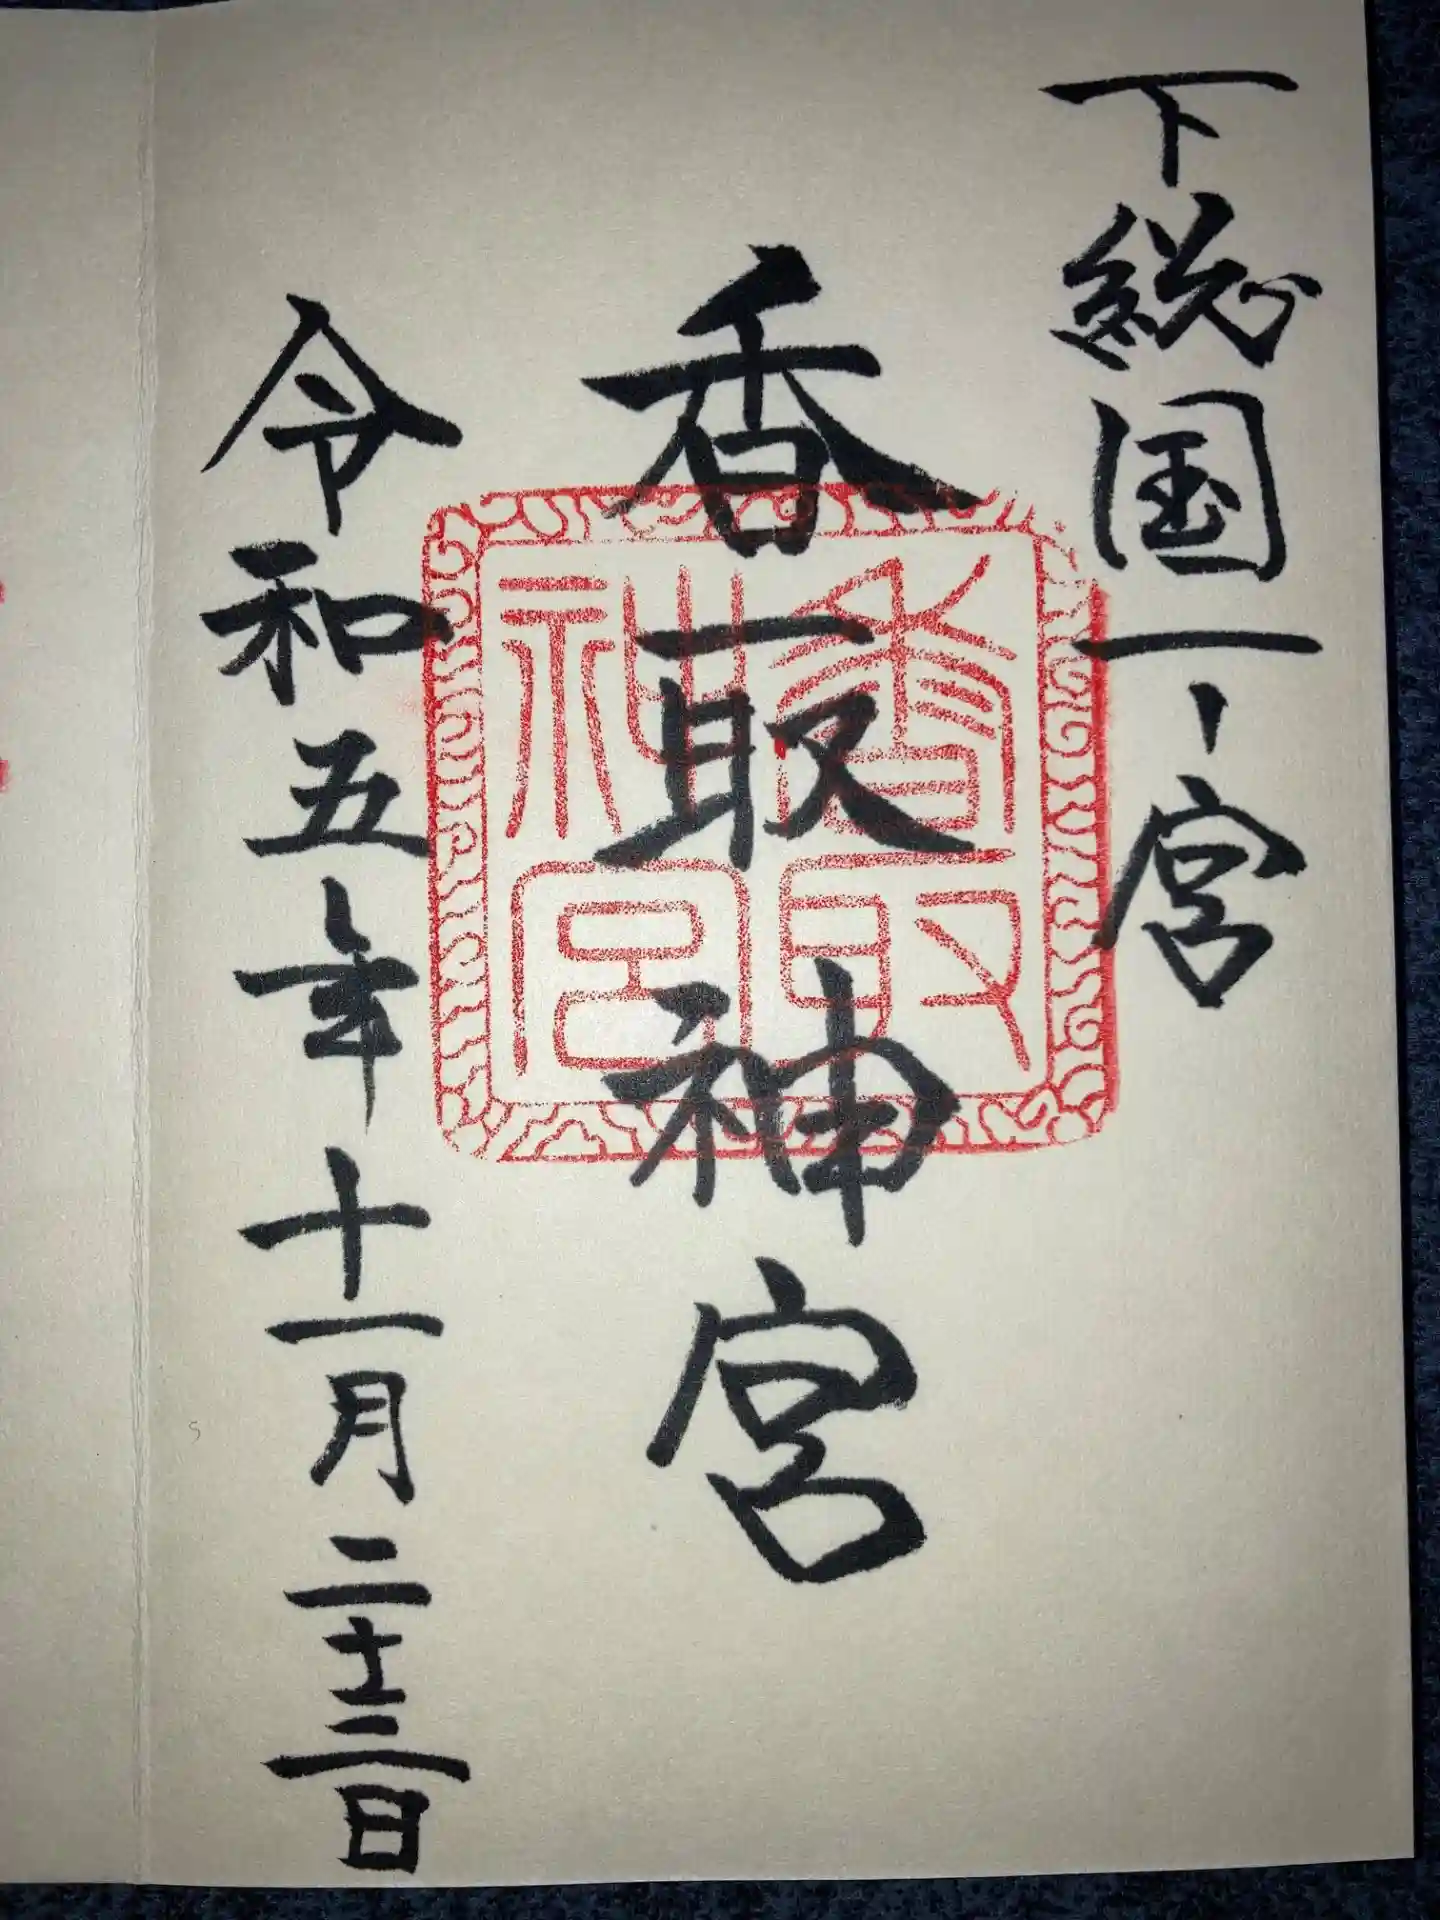 下総国一ノ宮
香取神宮
香取
神宮
令和五年十一月二十三日